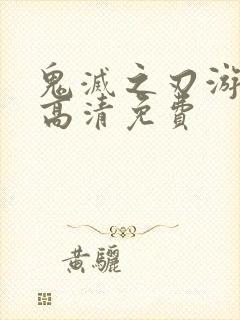 鬼滅之刃游
高清免費
黃驪